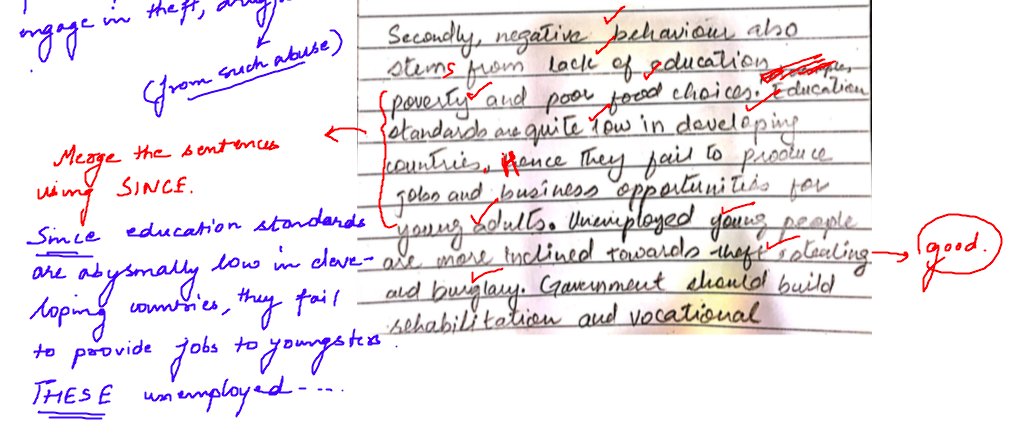 engage in theft, drug
(from such abuse)
Secondly, negative behaviour also
stems from lack of education
poverty and poor food choices. Education
standards are quite low in developing
countries. Hence they fail to produce
jobs and business opportunities for
young adults. Unemployed young people
are more inclined towards theft, stealing
and burglary. Government should build
rehabilitation and vocational
Merge the sentences
using SINCE.
Since education standards
are abysmally low in deve-
loping countries, they fail
to provide jobs to youngsters.
THESE unemployed - - ...
good.